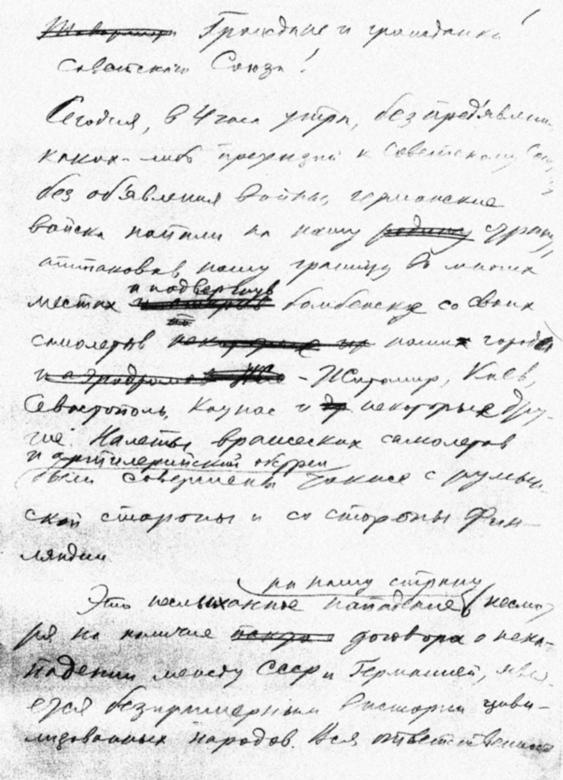 Граждане и гражданки!
Советского Союза!
Сегодня, в 4 часа утра, без предъявлен.
каких-либо претензий к Советскому Союз
без объявления войны, германские
войска напали на нашу родину страну,
аттаковав нашу границу во многих
и подвергнув
местах бомбежке со своих
самолетов наши города
- Житомир, Киев,
Севастополь, Каунас и др некоторые дру-
гие. Налеты вражеских самолетов
и артилерийский обстрел
были совершены также с румын-
ской стороны и со стороны Фин-
ляндии
на нашу страну
Это неслыханное нападение несмот
ря на наличие договора о нена-
падении между СССР и Германией, явл
ется безпримерным в истории циви-
лизованных народов. Вся ответственно